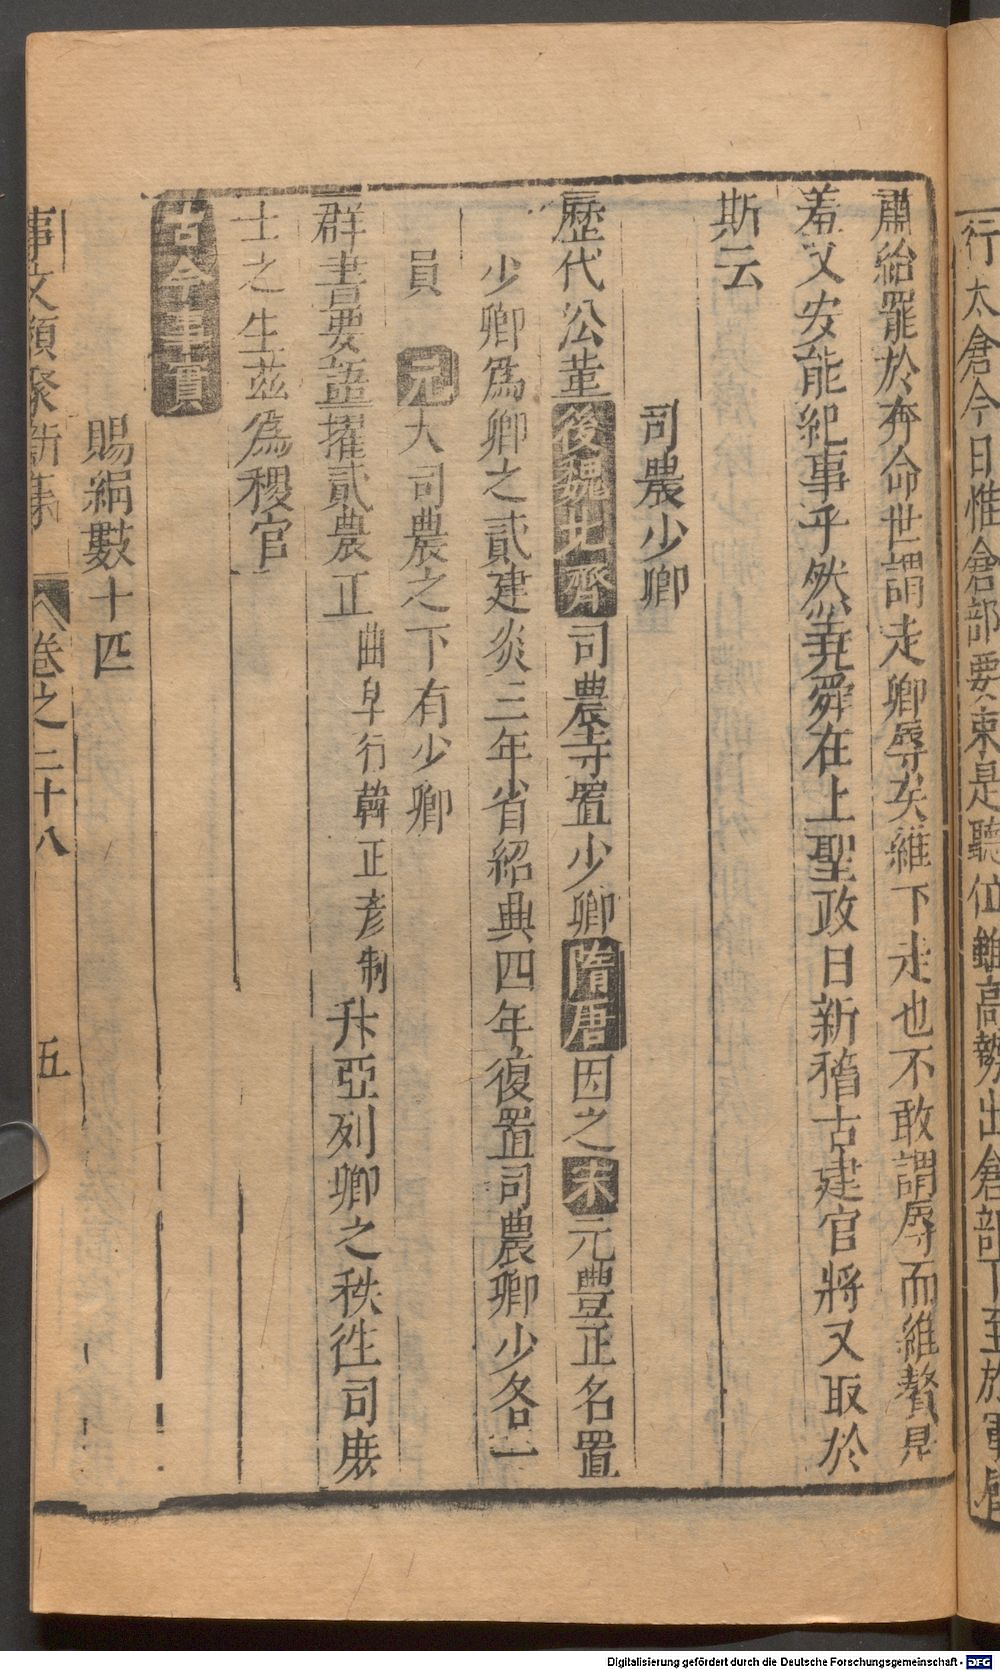 行太倉今日惟倉部要束是聽位雖高勢出倉部下至於軍
肅紿罷於奔命世謂走卿辱矣維下走也不敢謂辱而維贅見
羞又安能紀事乎然堯舜在上聖政日新稽古建官將又取於
斯云
司農少卿
歷代公革後魏北齊司農寺置少卿隋唐因之宋元豐正名置
少卿為卿之貳建炎三年省紹興四年復置司農卿少各一
員 元大司農之下有少卿
群書要語擢貳農正曲阜行韓正彥制升亞列卿之秩徃司庶
士之生茲為稷官
古今事實
賜絹數十匹
事文類聚新集 卷之二十八 五
Digitalisierung gefördert durch die Deutsche Forschungsgemeinschaft - DFG